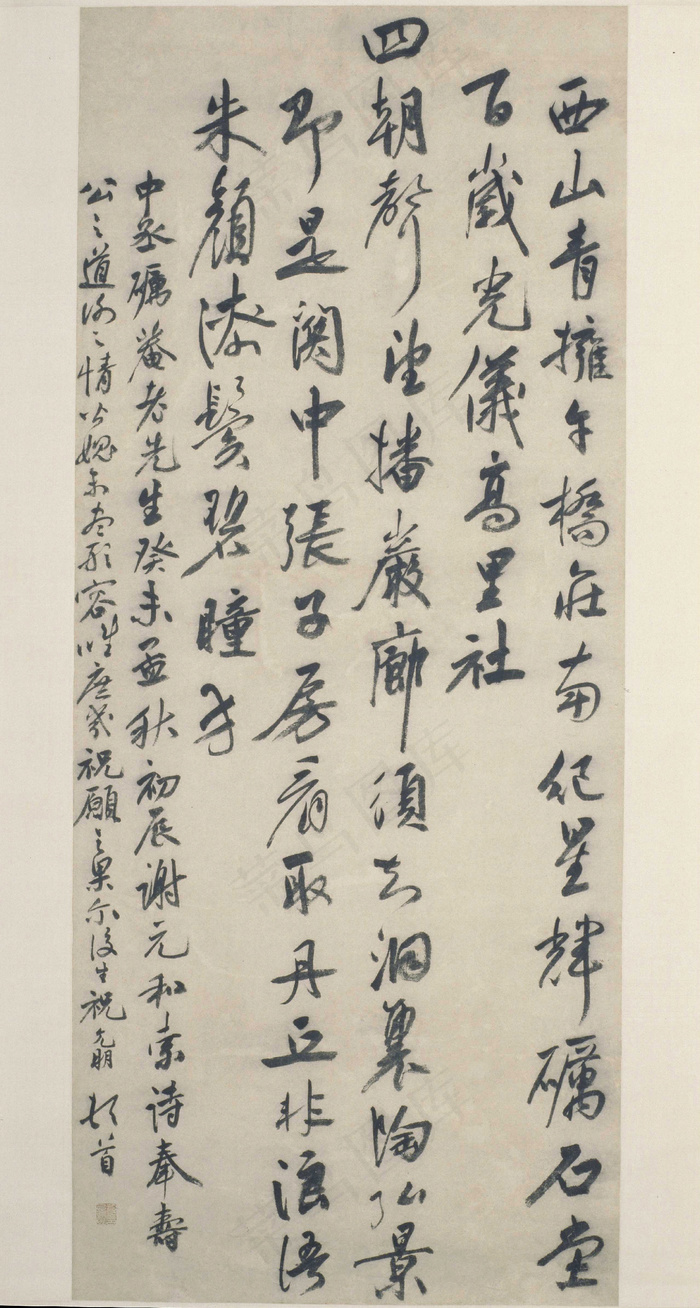 西山青擁午橋莊南紀星輝礪石堂
百歲光儀高里社
四朝聲望播巖廊須知洞裏陶弘景
即是關中張子房看取丹丘非浪語
朱顏漆鬢碧瞳方
中丞礪菴老先生癸未孟秋初辰謝元和索詩奉壽
公之道謝之情皆媿未盡形容惟庶幾祝願之果爾後生祝允明頓首